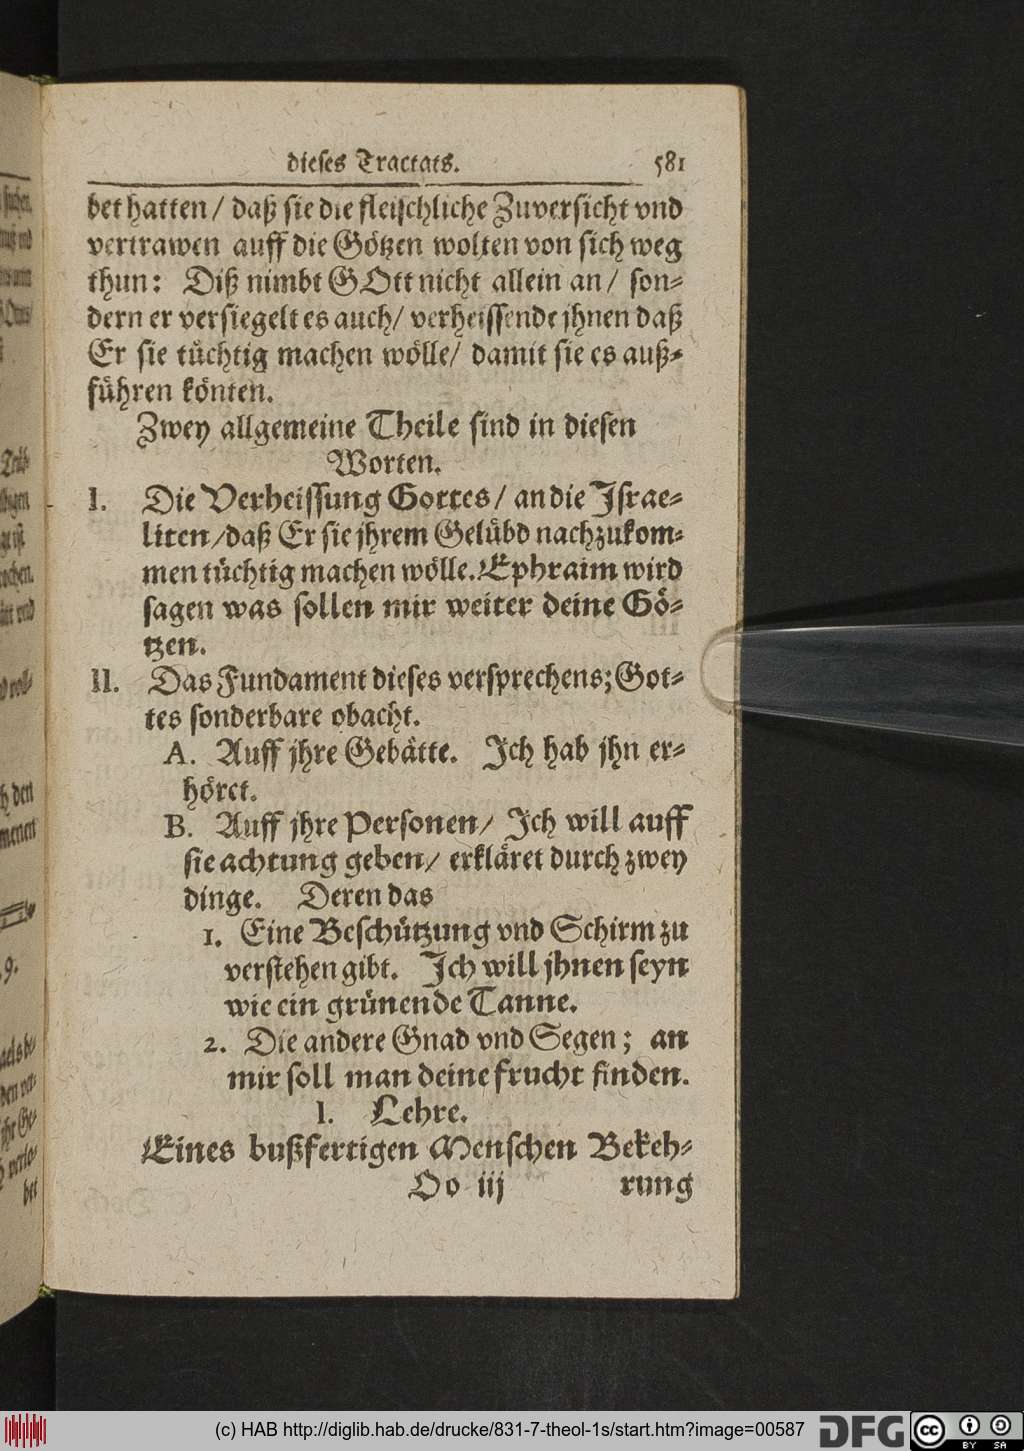 dieses Tractats. 581
bet hatten / daß sie die fleischliche Zuversicht vnd
vertrawen auff die Götzen wolten von sich weg
thun: Diß nimbt GOtt nicht allein an / son-
dern er versiegelt es auch / verheissende jhnen daß
Er sie tüchtig machen wölle / damit sie es auß-
führen könten.
Zwey allgemeine Theile sind in diesen
Worten.
I. Die Verheissung Gottes / an die Israe-
liten / daß Er sie jhrem Gelübd nachzukom-
men tüchtig machen wölle. Ephraim wird
sagen was sollen mir weiter deine Gö-
tzen.
II. Das Fundament dieses versprechens; Got-
tes sonderbare obacht.
A. Auff jhre Gebätte. Ich hab jhn er-
höret.
B. Auff jhre Personen / Ich will auff
sie achtung geben / erkläret durch zwey
dinge. Deren das
1. Eine Beschützung vnd Schirm zu
verstehen gibt. Ich will jhnen seyn
wie ein grünende Tanne.
2. Die andere Gnad vnd Segen; an
mir soll man deine frucht finden.
I. Lehre.
Eines bußfertigen Menschen Bekeh-
Oo iij rung
(c) HAB http://diglib.hab.de/drucke/831-7-theol-1s/start.htm?image=00587
DFG
cc
BY SA